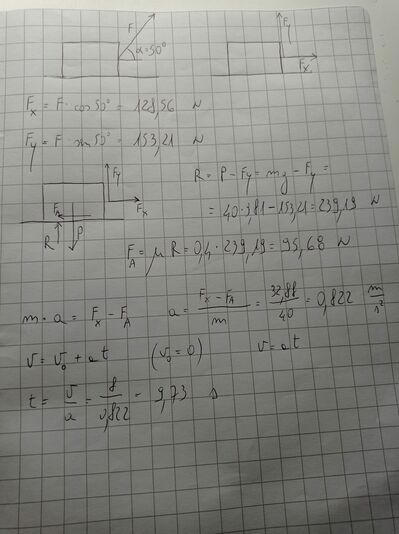 F
α=50°
Fy
Fx
Fx = F· cos 50° = 128,56 N
Fy = F· sin 50° = 153,21 N
Fy
Fx
FA
R
P
R = P - Fy = mg - Fy =
= 40·9,81-153,21 = 239,19 N
FA = μ R = 0,4·239,19 = 95,68 N
m·a = Fx - FA
a = Fx - FA / m = 32,88 / 40 = 0,822 m/s²
v = v₀ + at (v₀=0) v = at
t = v/a = 8/0,822 = 9,73 s